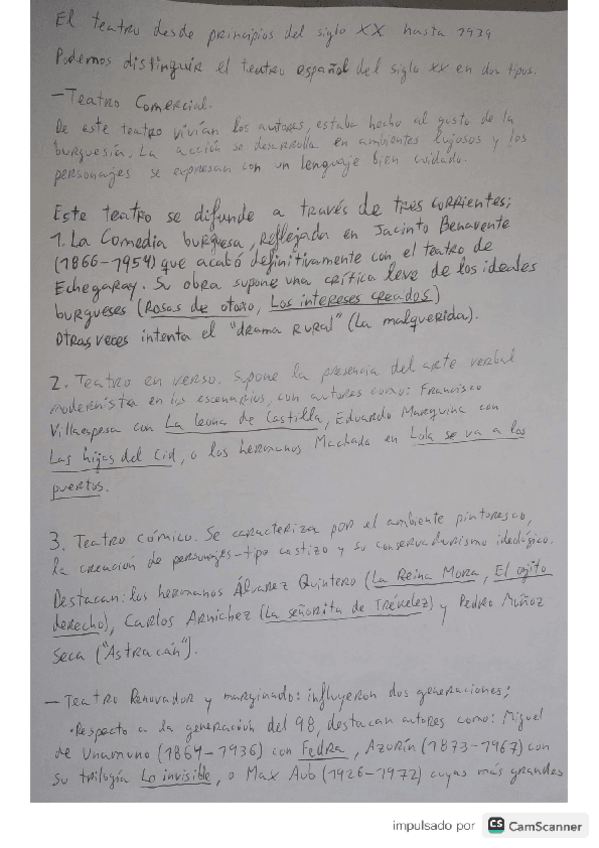 El teatro desde principios del siglo XX hasta 1939
Podemos distinguir el teatro español del siglo XX en dos tipos.
- Teatro Comercial.
De este teatro vivían los autores, estaba hecho al gusto de la
burguesía. La acción se desarrolla en ambientes lujosos y los
personajes se expresan con un lenguaje bien cuidado.
Este teatro se difunde a través de tres corrientes;
1. La Comedia burguesa, reflejada en Jacinto Benavente
(1866-1954) que acabó definitivamente con el teatro de
Echegaray. Su obra supone una crítica leve de los ideales
burgueses (Rosas de otoño, Los intereses creados)
Otras veces intenta el "drama rural" (La malquerida).
2. Teatro en verso. Supone la presencia del arte verbal
modernista en los escenarios, con autores como: Francisco
Villaespesa con La leona de Castilla, Eduardo Marquina con
Las hijas del Cid, o los hermanos Machado en Lola se va a los
puertos.
3. Teatro cómico. Se caracteriza por el ambiente pintoresco,
la creación de personajes-tipo castizo y su conservadurismo ideológico.
Destacan: los hermanos Álvarez Quintero (La Reina Mora, El ojito
derecho), Carlos Arnichez (La señorita de Trévelez) y Pedro Muñoz
Seca ("Astracán").
- Teatro Renovador y marginado: influyeron dos generaciones;
• Respecto a la generación del 98, destacan autores como: Miguel
de Unamuno (1864-1936) con Fedra, Azorín (1873-1967) con
su trilogía Lo invisible, o Max Aub (1926-1972) cuyas más grandes
impulsado por CS CamScanner